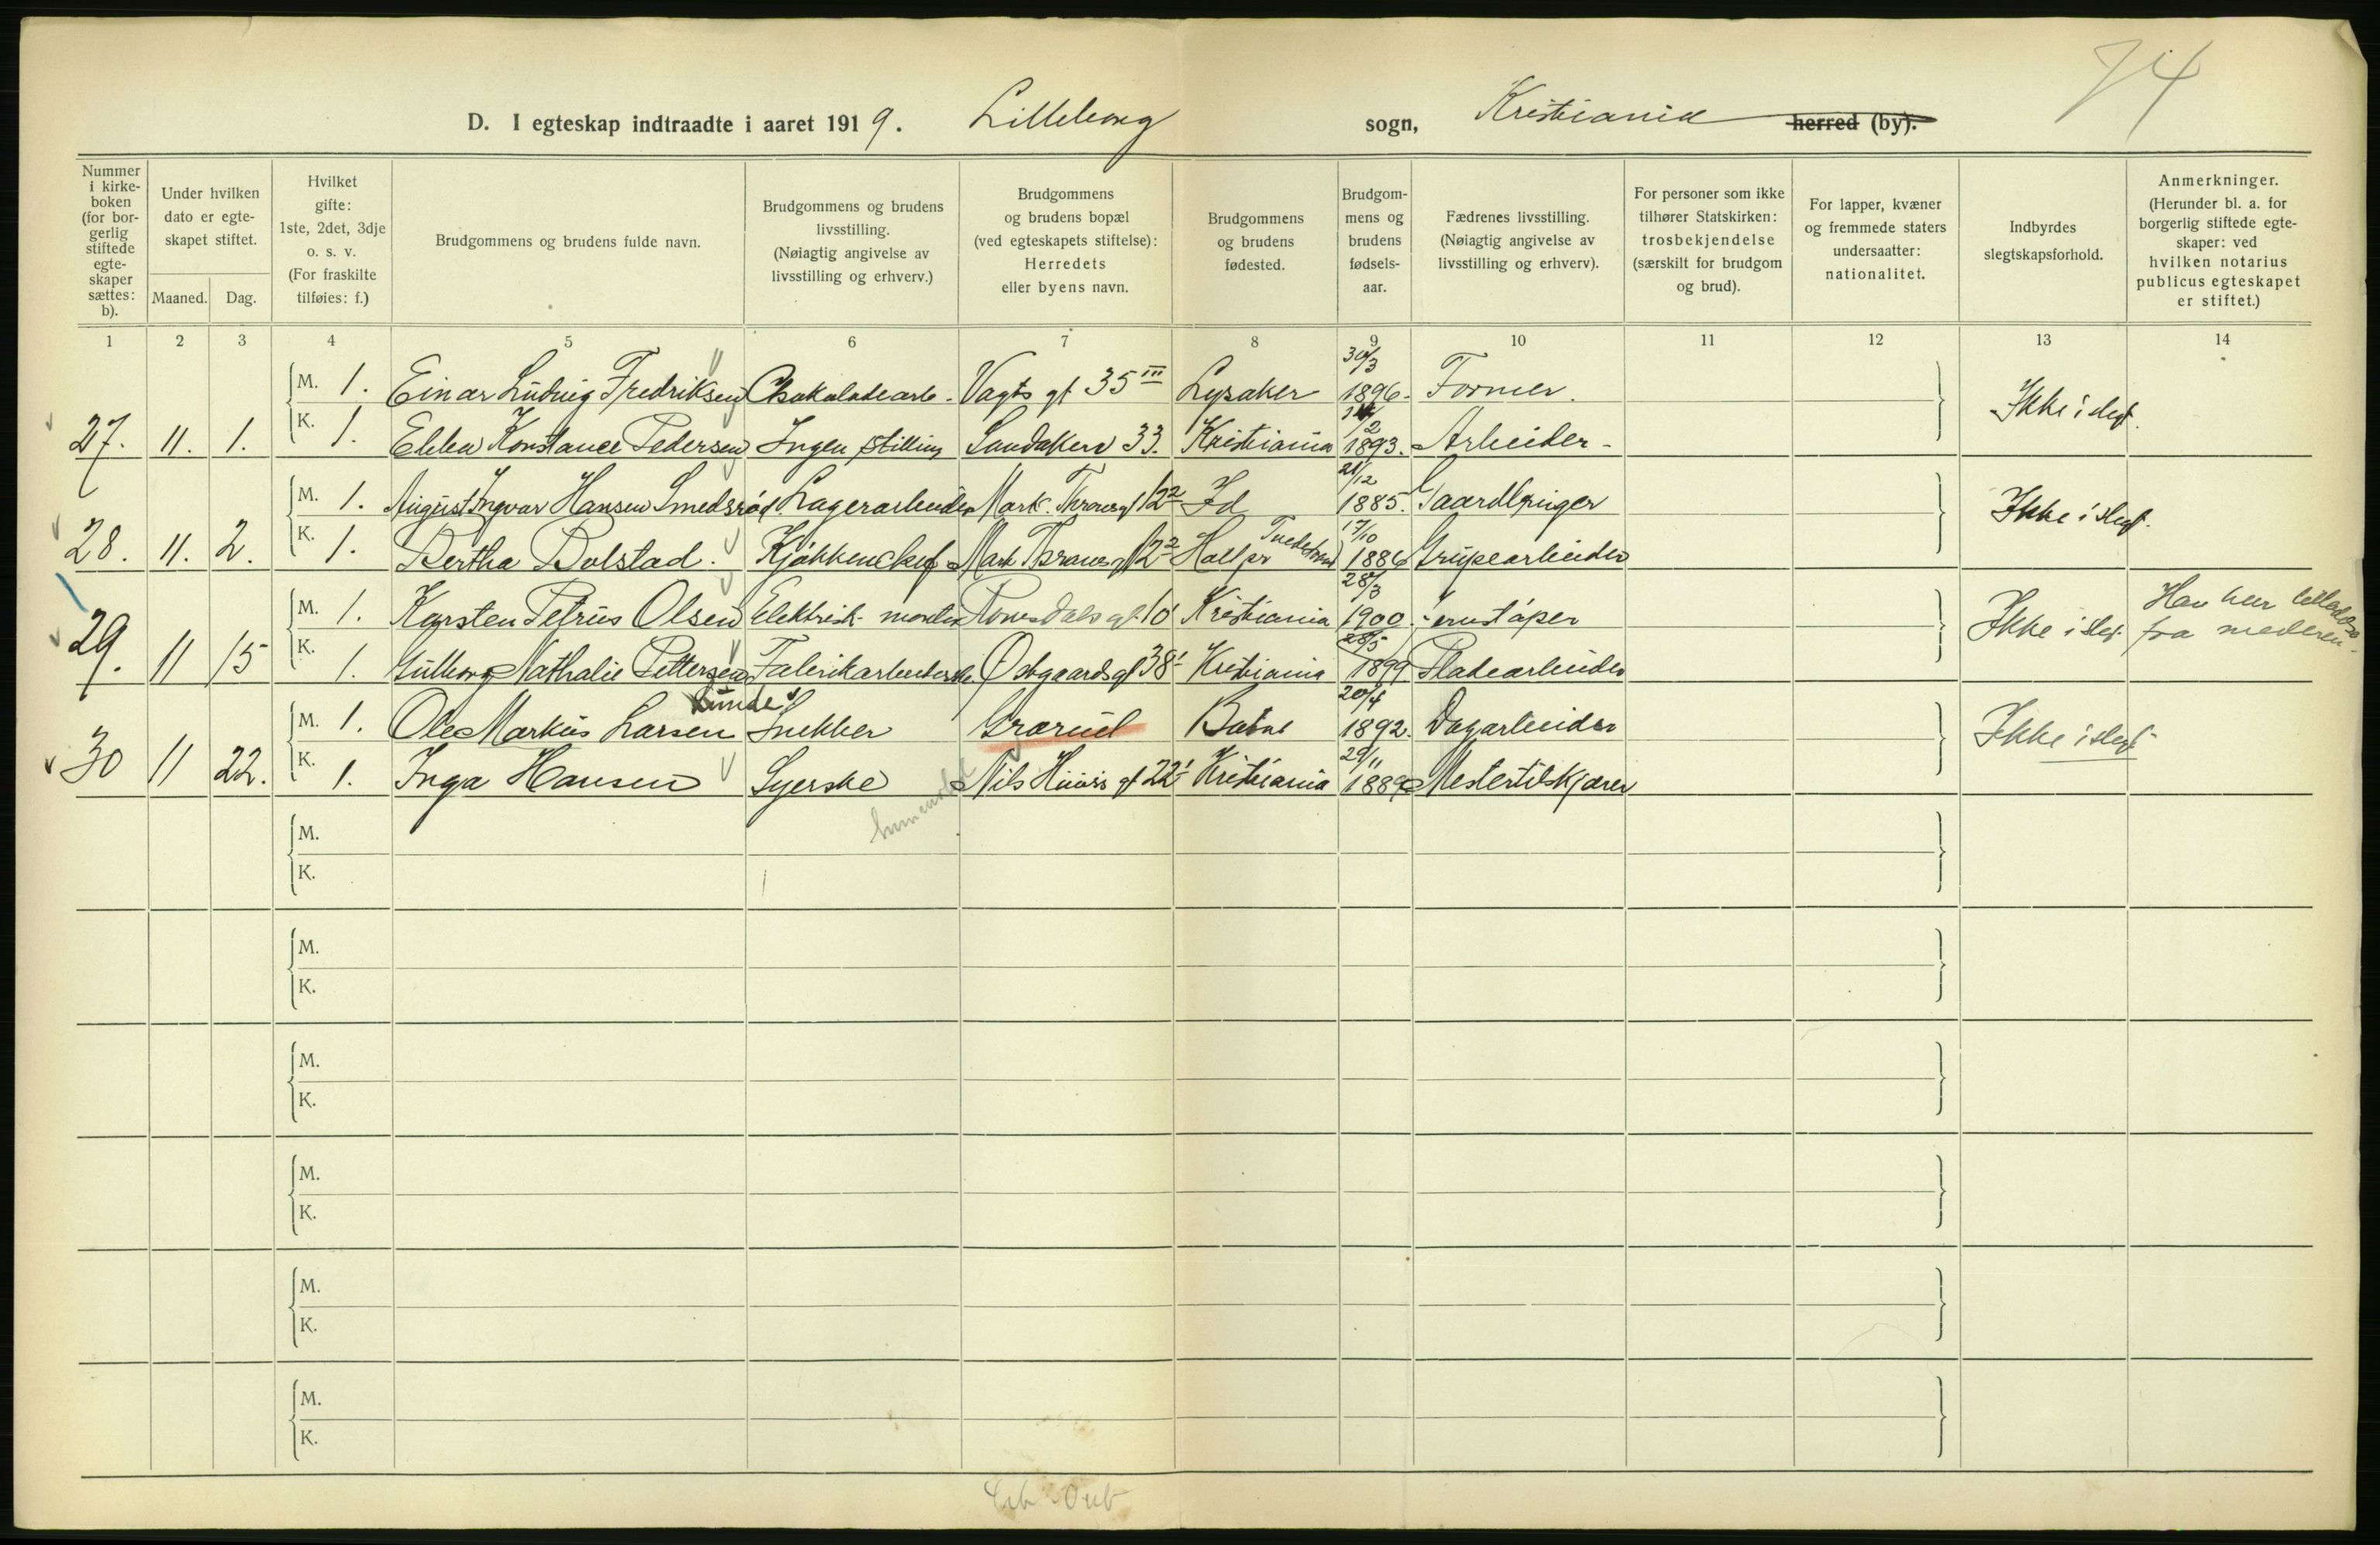 74
D. I egteskap indtraadte i aaret 1919. Lilleborg sogn, Kristiania herred (by).
Nummer i kirke-boken (for bor-gerlig stiftede egte-skaper sættes: b).
Under hvilken dato er egte-skapet stiftet.
Maaned. Dag.
Hvilket gifte: 1ste, 2det, 3dje o. s. v. (For fraskilte tilføies: f.)
Brudgommens og brudens fulde navn.
Brudgommens og brudens livsstilling. (Nøiagtig angivelse av livsstilling og erhverv.)
Brudgommens og brudens bopæl (ved egteskapets stiftelse): Herredets eller byens navn.
Brudgommens og brudens fødested.
Brudgom-mens og brudens fødsels-aar.
Fædrenes livsstilling. (Nøiagtig angivelse av livsstilling og erhverv).
For personer som ikke tilhører Statskirken: trosbekjendelse (særskilt for brudgom og brud).
For lapper, kvæner og fremmede staters undersaatter: nationalitet.
Indbyrdes slegtskapsforhold.
Anmerkninger. (Herunder bl. a. for borgerlig stiftede egte-skaper: ved hvilken notarius publicus egteskapet er stiftet.)
1 2 3 4 5 6 7 8 9 10 11 12 13 14
M. 1. Einar Ludvig Fredriksen Chokoladearb. Vagts gt 35 III Lysaker 30/3 1896. Former.
27. 11. 1. K. 1. Ebba Konstance Pedersen Ingen stilling Sandakerv 33. Kristiania 1893. Arbeider - Ikke i slegt.
M. 1. August Ingvar Hansen Smedsrød Lagerarbeider Mark. Thranesgt 12 2 Id 21/12 1885. Gaardbruger
28. 11. 2. K. 1. Bertha Bolstad. Kjøkkenchef Mark Thranes gt 12 2 Holt pr Tvedestrand 17/10 1886 Grubearbeider Ikke i slegt.
M. 1. Karsten Petrus Olsen Elektrisk montør Romsdals gt. 10 Kristiania 28/3 1900. Jernstøper
29. 11 15 K. 1. Gudborg Nathalie Pettersen Fabrikarbeiderske Østgaardsgt 38 I Kristiania 28/5 1899 Pladearbeider Ikke i slegt. Han har tilladelse fra moderen.
M. 1. Ole Markus Larsen Lunde Snekker Grorud 20/4 1892. Dagarbeider
30 11 22. K. 1. Inga Hansen Syerske Nils Huus gt 22 I Kristiania 29/11 1889 Mestertilskjærer Ikke i slegt
M.
K.
M.
K.
M.
K.
M.
K.
M.
K.
M.
K.